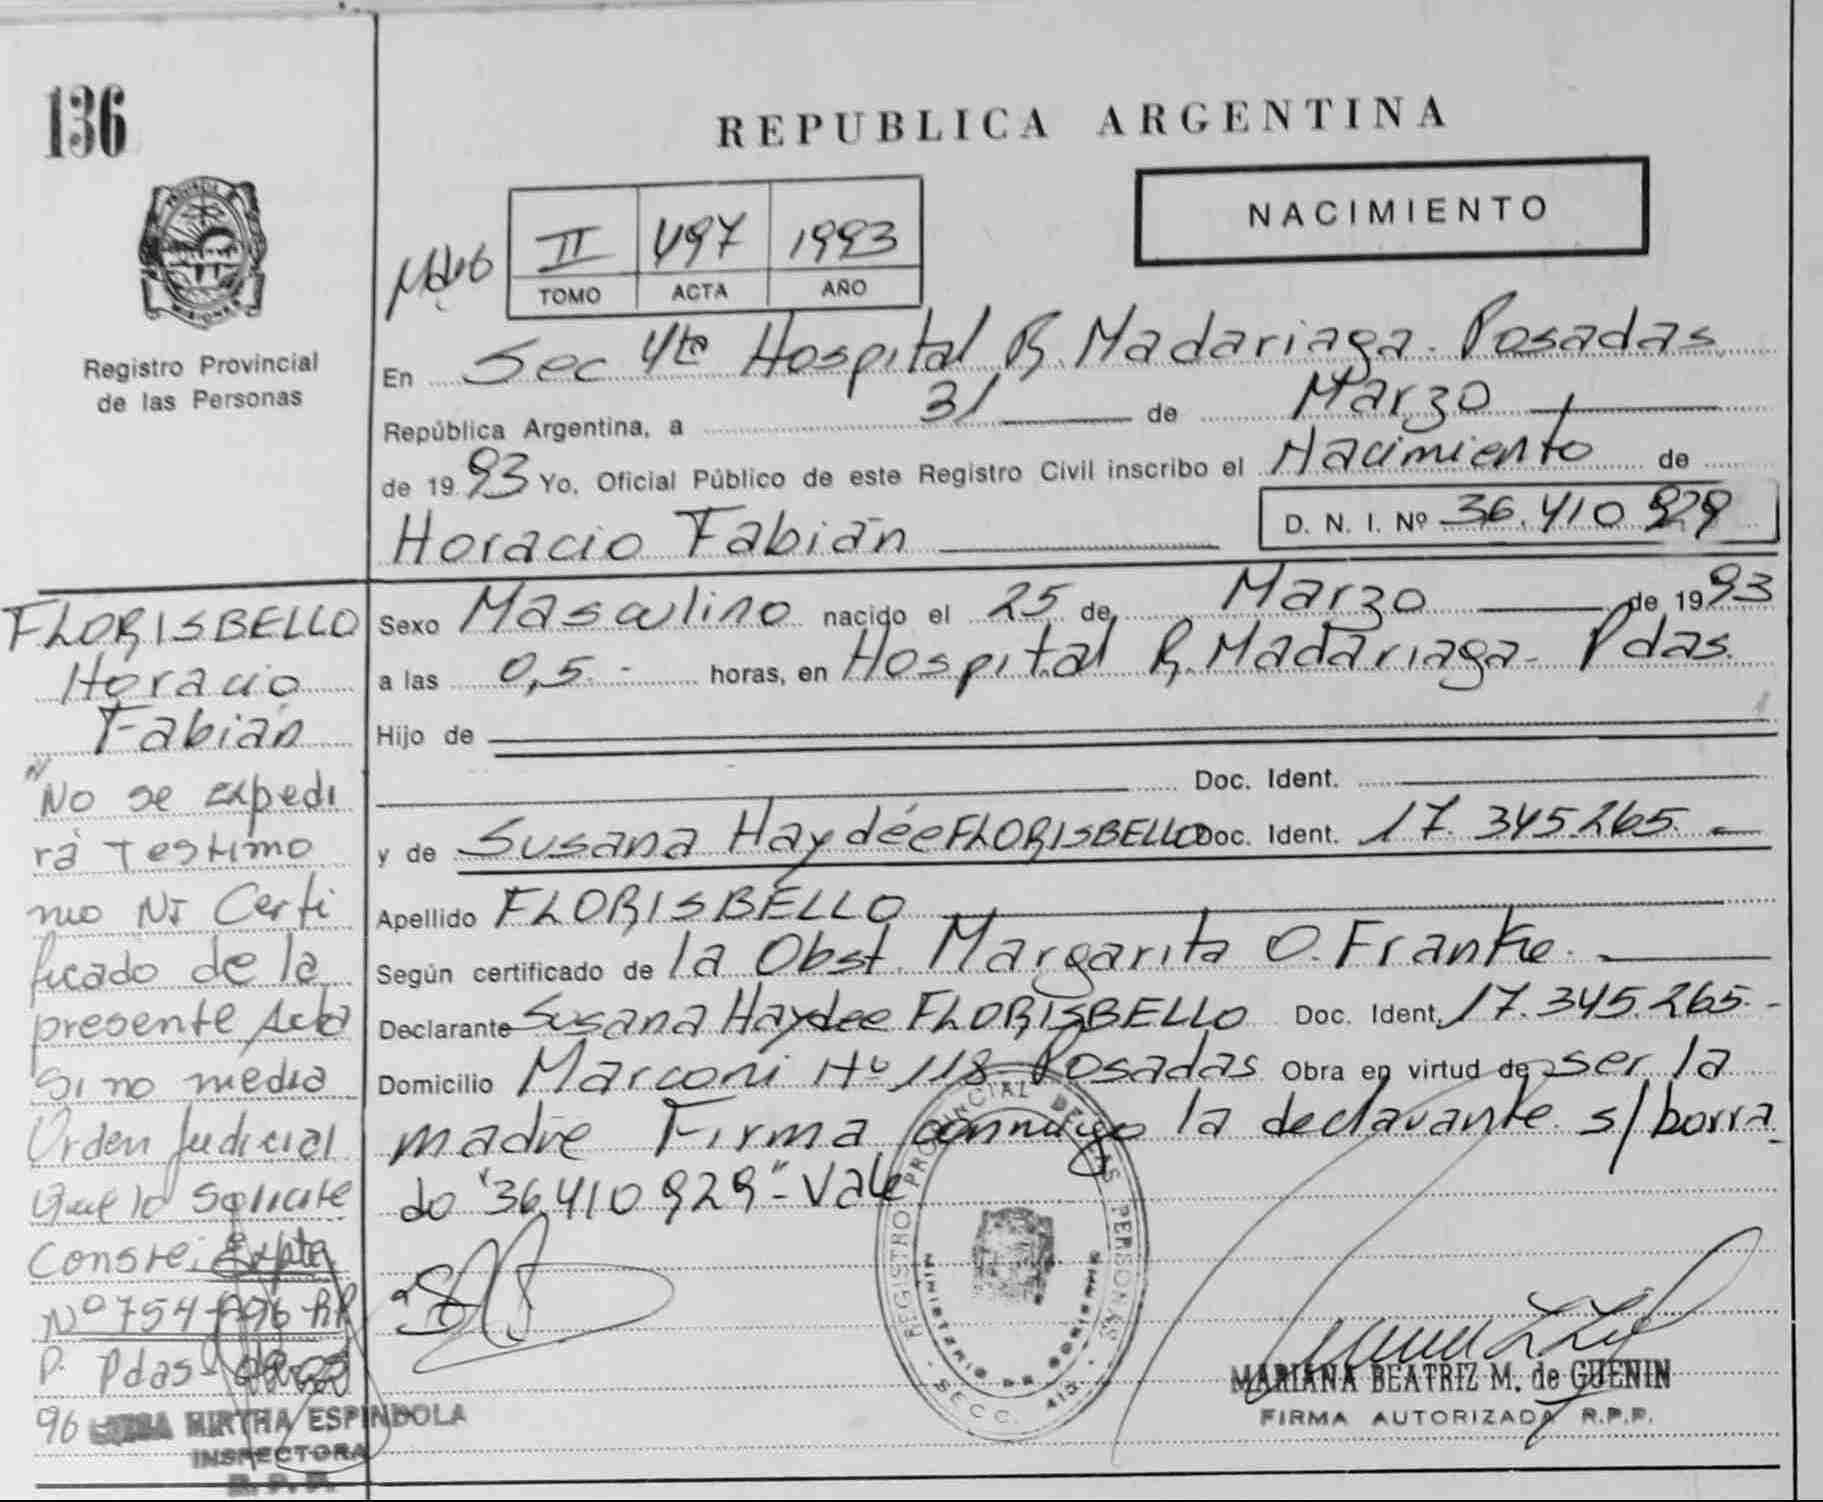 136
REPUBLICA ARGENTINA
NACIMIENTO
II 497 1993
TOMO ACTA AÑO
PROVINCIA DE MISIONES
Registro Provincial
de las Personas
En Sec 4ta Hospital R. Madariaga - Posadas
República Argentina, a 31 de Marzo
de 1993 Yo, Oficial Público de este Registro Civil inscribo el Nacimiento de
Horacio Fabián D. N. I. Nº 36.410.929
Sexo Masculino nacido el 25 de Marzo de 1993
a las 0,5.- horas, en Hospital R. Madariaga - Pdas.
Hijo de
Doc. Ident.
y de Susana Haydée FLORISBELLO Doc. Ident. 17.345265.-
Apellido FLORISBELLO
Según certificado de la Obst. Margarita O. Franke.
Declarante Susana Haydee FLORISBELLO Doc. Ident. 17.345.265.-
Domicilio Marconi Nº 118 Posadas Obra en virtud de ser la
madre Firma conmigo la declarante. s/borra
do "36.410.929"- Vale
FLORISBELLO
Horacio
Fabián
No se expedi
rá testimo
nio Ni Certi
ficado de la
presente Acta
Si no media
Orden Judicial
Que lo Solicite
Conste. Expte
Nº 754-
P. Pdas
96
MIRTHA ESPINDOLA
INSPECTORA
R. P. P.
REGISTRO PROVINCIAL DE LAS PERSONAS
MINISTERIO DE GOBIERNO
SECC. 4ta
MARIANA BEATRIZ M. de GUENIN
FIRMA AUTORIZADA R.P.P.